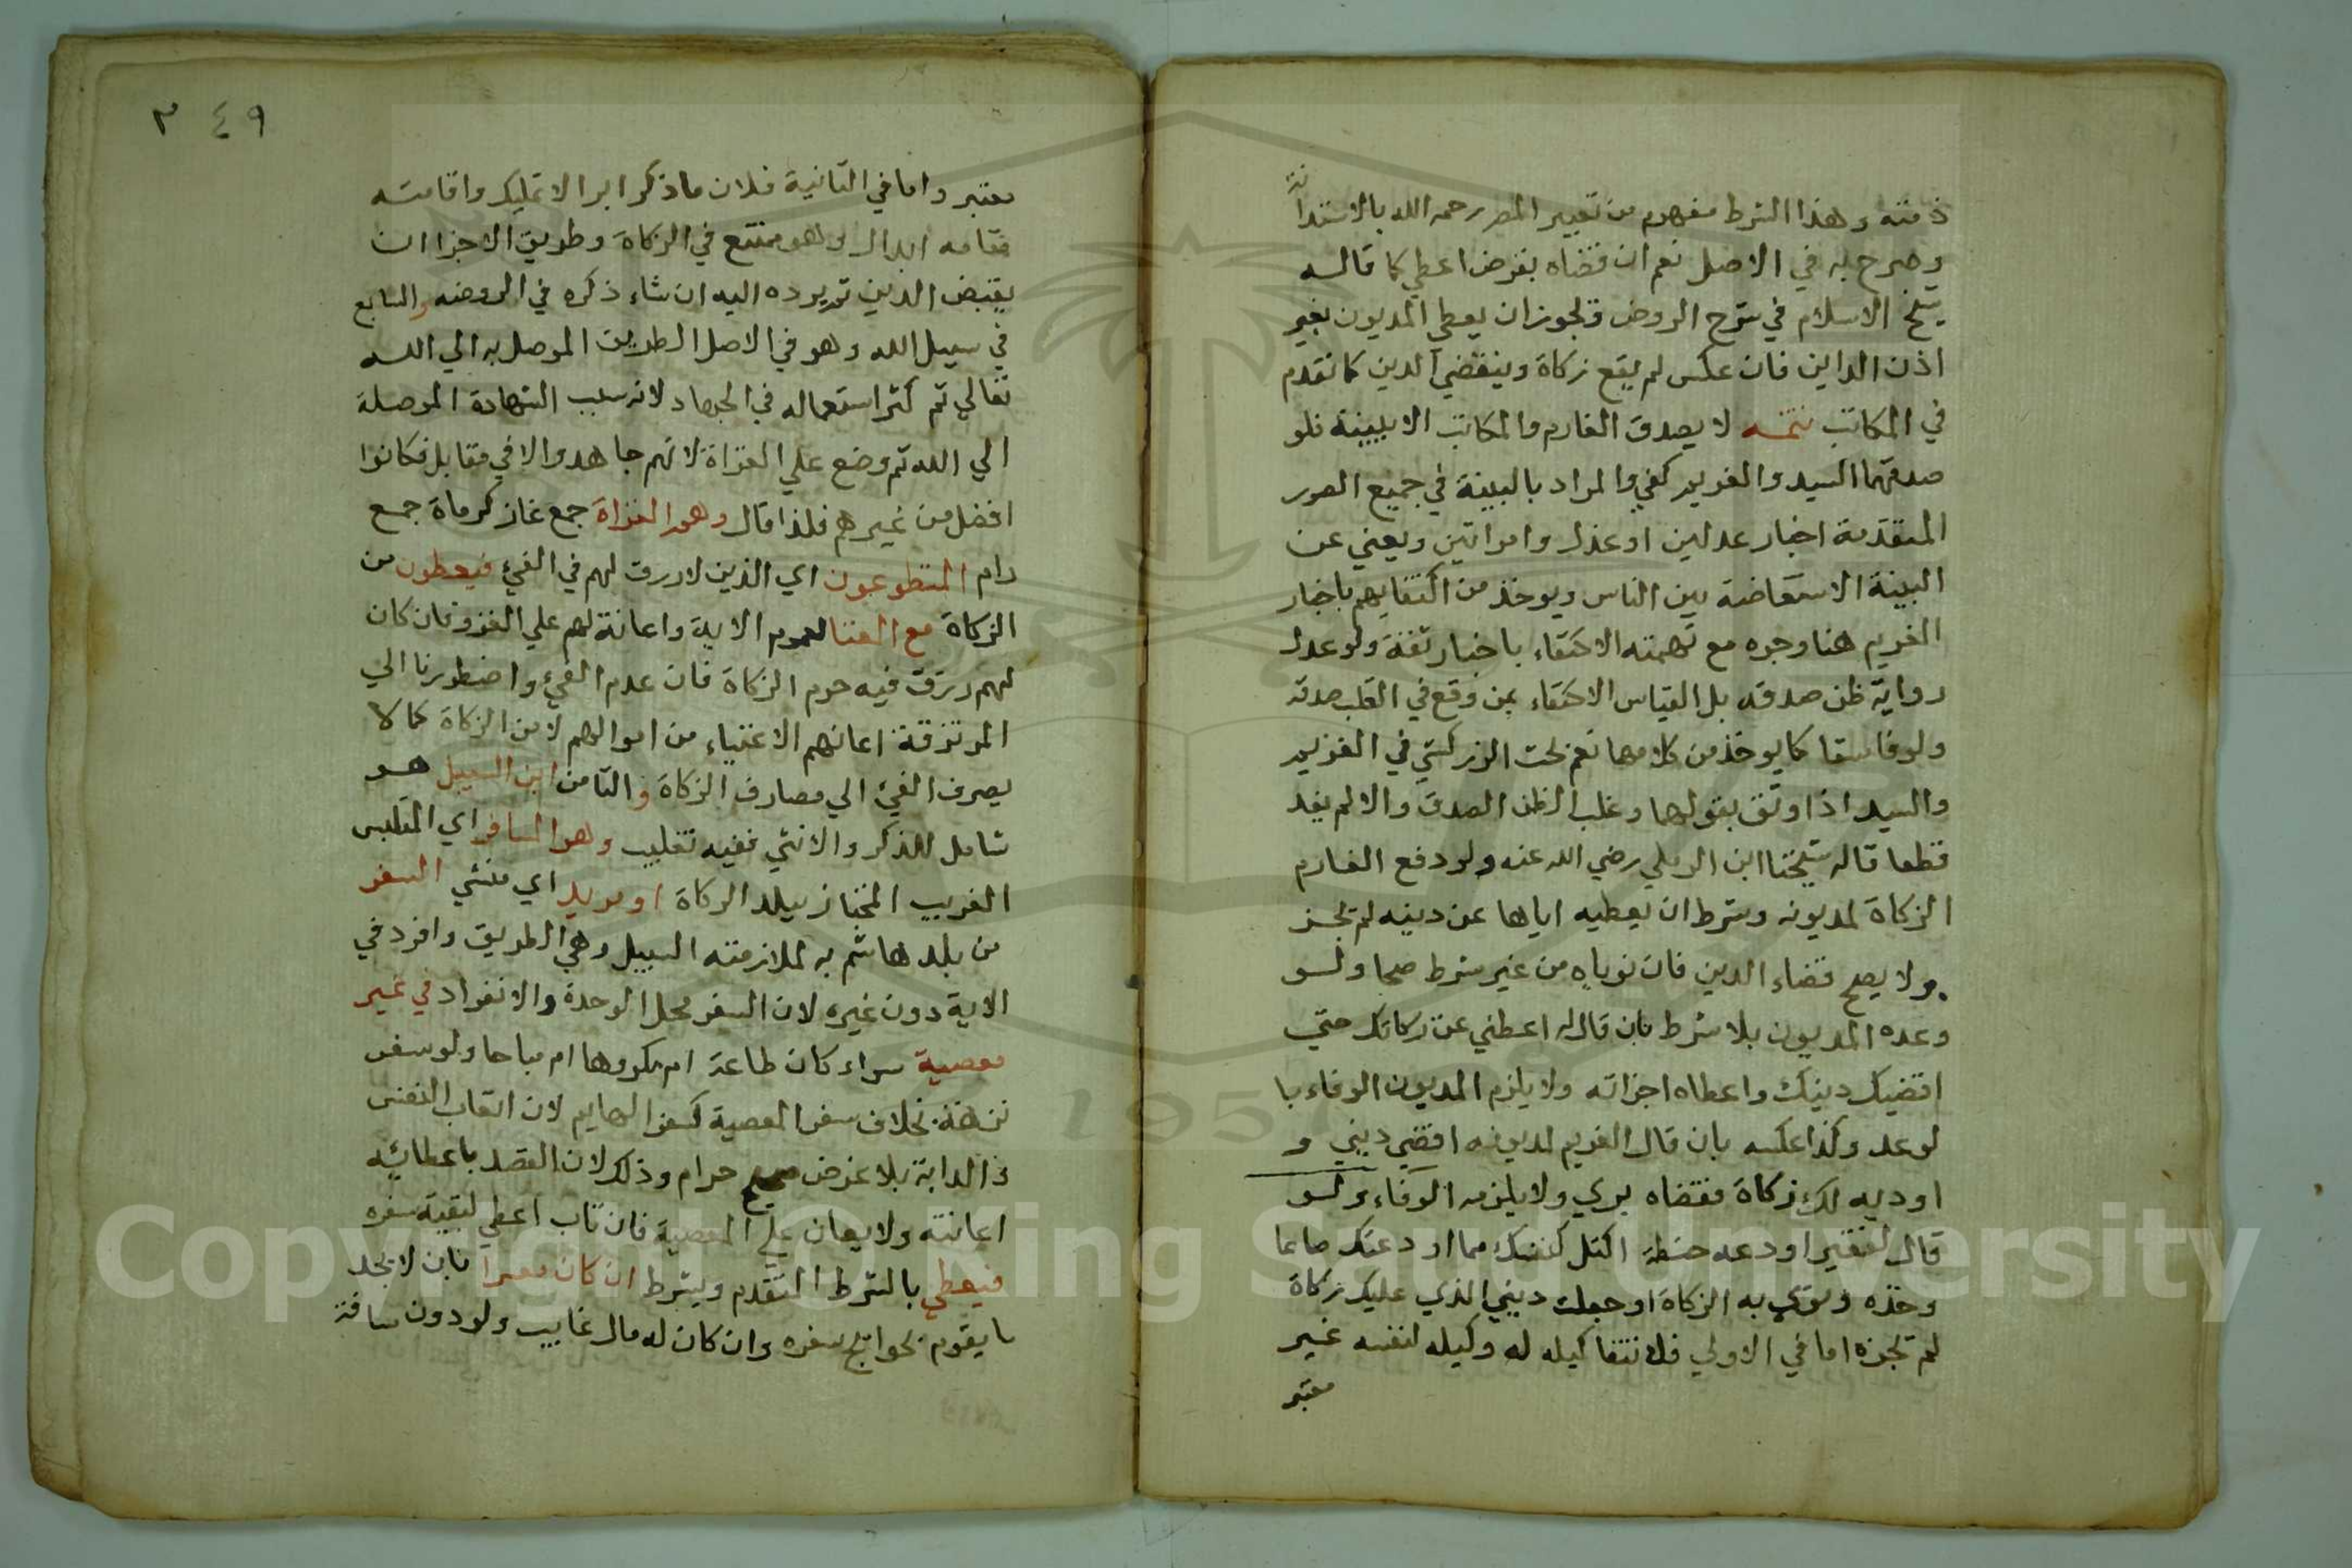 ذمته وهذا الشرط مفهوم من تعبير المصر رحمه الله بالاستدانة
وصرح به في الاصل نعم ان قضاه بقرض اعطي كما قاله
شيخ الاسلام في شرح الروض ويجوز ان يعطي المديون بغير
اذن الداين فان عكس لم يقع زكاة وينقضي الدين كما تقدم
في المكاتب تتمه لا يصدق الغارم والمكاتب الا ببينة فلو
صدقهما السيد والغريم كفي والمراد بالبينة في جميع الصور
المتقدمة اخبار عدلين او عدل وامراتين ويغني عن
البينة الاستفاضة بين الناس ويوخذ من اكتفايهم باخبار
الغريم هنا وحده مع تهمته الاكتفاء باخبار ثقة ولو عدل
رواية ظن صدقه بل القياس الاكتفاء بمن وقع في القلب صدقه
ولو فاسقا كما يوخذ من كلامهما نعم بحث الزركشي في الغريم
والسيد اذا وثق بقولهما وغلب الظن الصدق والا لم يفد
قطعا قاله شيخنا ابن الرملي رضي الله عنه ولو دفع الغارم
الزكاة لمديونه وشرط ان يعطيه اياها عن دينه لم تجز
ولا يصح قضاء الدين فان نوياه من غير شرط صحا ولو
وعده المديون بلا شرط بان قال له اعطني عن زكاتك حتي
اقضيك دينك واعطاه اجزاته ولا يلزم المديون الوفاء با
لوعد وكذا عكسه بان قال الغريم لمديونه اقضي ديني و
اوديه لك زكاة فقضاه بري ولا يلزمه الوفاء ولو
قال لفقير اودعه حنطة اكتل لنفسك مما اودعتك صاعا
وخذه ونوي به الزكاة او جعلت ديني الذي عليك زكاة
لم تجزه اما في الاولي فلانتفا كيله له وكيله لنفسه غير
معتبر
٣٤٩
معتبر واما في الثانية فلان ما ذكر ابرا لا تمليك واقامته
مقامه ابدال وهو ممتنع في الزكاة وطريق الاجزا ان
يقبض الدين ثم يرده اليه ان شاء ذكره في الروضه والسابع
في سبيل الله وهو في الاصل الطريق الموصل به الي الله
تعالي ثم كثر استعماله في الجهاد لانه سبب الشهادة الموصلة
الي الله ثم وضع علي الغزاة لانهم جاهدوا لا في مقابل فكانوا
افضل من غيرهم فلذا قال وهم الغزاة جمع غاز كرماة جمع
رام المتطوعون اي الذين لا رزق لهم في الفئ فيعطون من
الزكاة مع الغنا لعموم الاية واعانة لهم علي الغزو فان كان
لهم رزق فيه حرم الزكاة فان عدم الفئ واضطررنا الي
المرتزقة اعانهم الاغنياء من اموالهم لا من الزكاة كما لا
يصرف الفئ الي مصارف الزكاة والثامن ابن السبيل هو
شامل للذكر والانثي ففيه تغليب وهو المسافر اي المتلبس
الغريب المجتاز ببلد الزكاة او مريد اي منشي السفر
من بلدها سمي به لملازمته السبيل وهي الطريق وافرد في
الاية دون غيره لان السفر محل الوحدة والانفراد في غير
معصية سواء كان طاعة ام مكروها ام مباحا ولو سفر
نزهة بخلاف سفر المعصية كسفر الهايم لان اتعاب النفس
والدابة بلا غرض صحيح حرام وذلك لان القصد باعطائه
اعانته ولا يعان علي المعصية فان تاب اعطي لبقية سفره
فيعطي بالشرط المتقدم ويشرط ان كان معسرا بان لا يجد
ما يقوم بحوائج سفره وان كان له مال غايب ولو دون مسافة
Copyright © King Saud University
1957